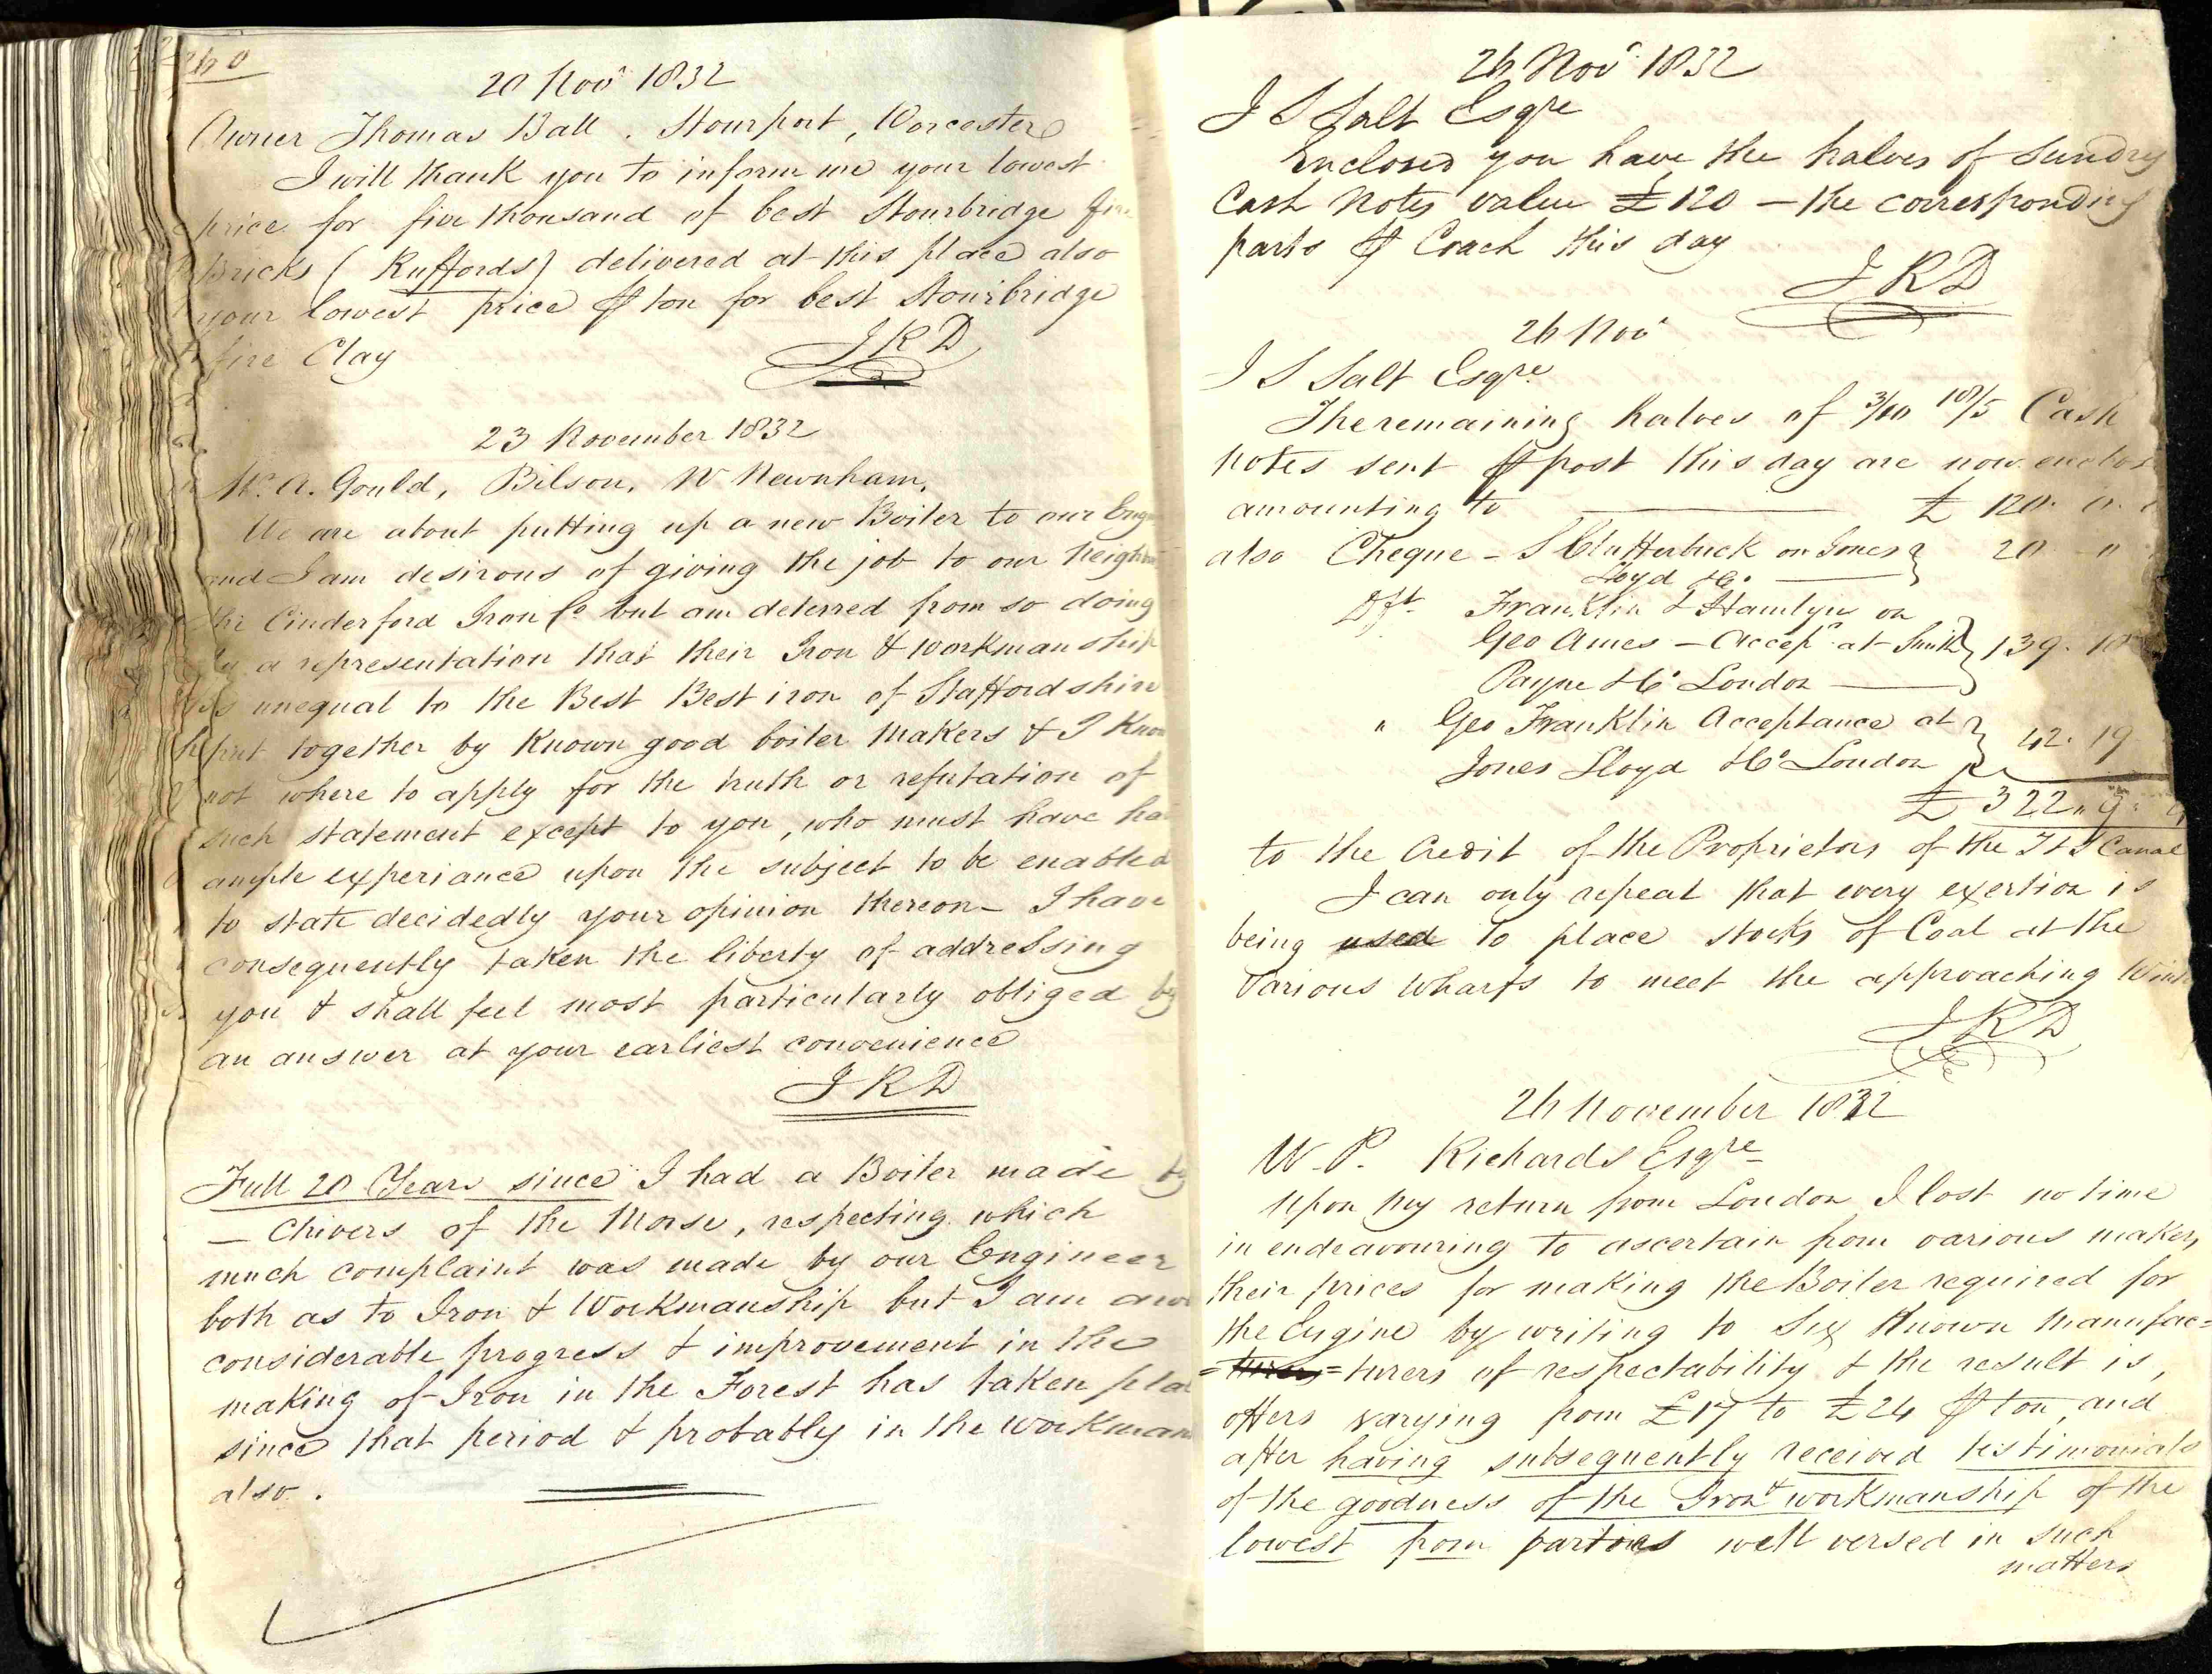 240
20 Nov.r 1832
Owner Thomas Ball. Stourport, Worcester
I will thank you to inform me your lowest
price for five thousand of best Stourbridge fire
Bricks (Ruffords) delivered at this place also
your lowest price ⅌ ton for best Stourbridge
fire Clay
JRD
23 November 1832
Mr. A. Gould, Bilson, Nr Newnham,
We are about putting up a new Boiler to our Eng
and I am desirous of giving the job to our neighbo
the Cinderford Iron Co. but am deterred from so doing
by a representation that their Iron & workmanship
is unequal to the Best Best iron of Staffordshire
put together by Known good boiler Makers & I Know
not where to apply for the truth or refutation of
such statement except to you, who must have ha
ample experiance upon the subject to be enabled
to state decidedly your opinion thereon - I have
consequently taken the liberty of addressing
you & shall feel most particularly obliged by
an answer at your earliest convenience
JRD
Full 20 Years since I had a Boiler made by
— Chivers of the Morse, respecting which
much complaint was made by our Engineer
both as to Iron & Workmanship but I am awa
considerable progress & improvement in the
making of Iron in the Forest has taken pla
since that period & probably in the workman
also.
24 Nov.r 1832
J S Salt Esqre
Enclosed you have the halves of Sundry
Cash Notes value £120 — the corresponding
parts ⅌ Coach this day
JRD
24 Nov.r
J S Salt Esqre
The remaining halves of 3/10 18/5 Cash
Notes sent ⅌ post this day are now enclos
amounting to £ 120.
also Cheque - S Clutterbuck on Jones 20 "
Lloyd & Co.
Dft. Franklin & Hamlyn on
Geo Ames — Accep.e at Smith 139. 10
Payne & Co. London
" Geo Franklin Acceptance at 42. 19
Jones Lloyd & Co. London
£ 322 " 9 "
to the Credit of the Proprietors of the T & S Canal
I can only repeat that every exertion is
being used to place stocks of Coal at the
various Wharfs to meet the approaching Wint
JRD
24 November 1832
W. P. Richards Esqre
Upon my return from London I lost no time
in endeavouring to ascertain from various makers
their prices for making the Boiler required for
the Engine by writing to Six Known Manufac=
=turers =turers of respectability & the result is,
offers varying from £17 to £24 ⅌ ton, and
after having subsequently received testimonials
of the goodness of the Iron & workmanship of the
lowest from parties well versed in such
matters